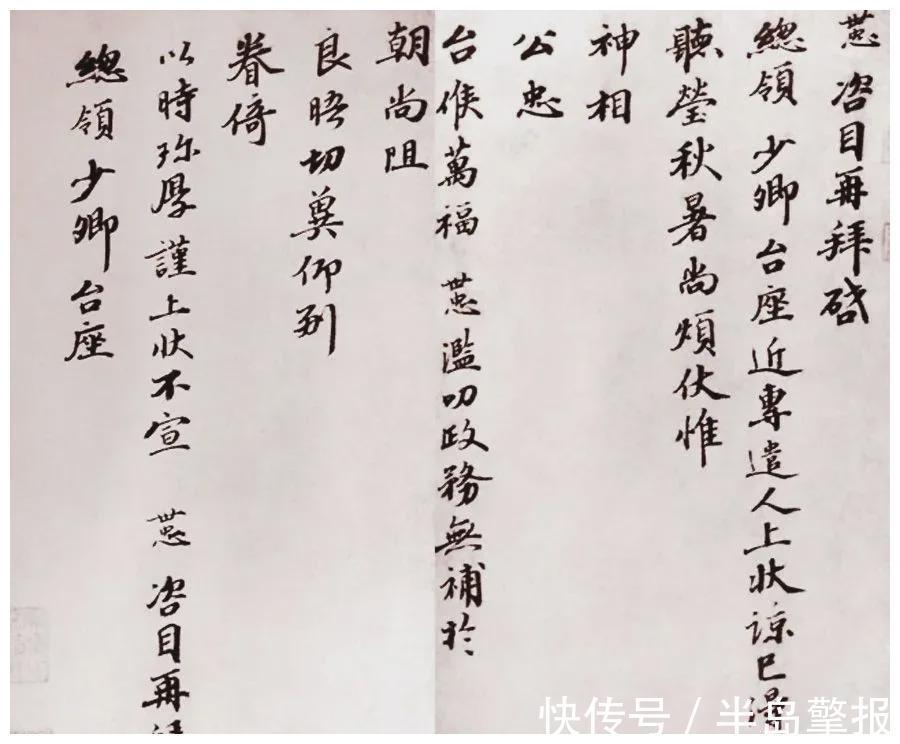 咨目再拜啓
總領少卿台座近專遣人上狀諒已
聽瑩秋暑尚煩伏惟
神相
公忠
台候萬福 濫叨政務無補於
朝尚阻
良晤切冀仰副
眷倚
以時珎厚謹上狀不宣 咨目再
總領少卿台座
快传号 / 半岛擎报